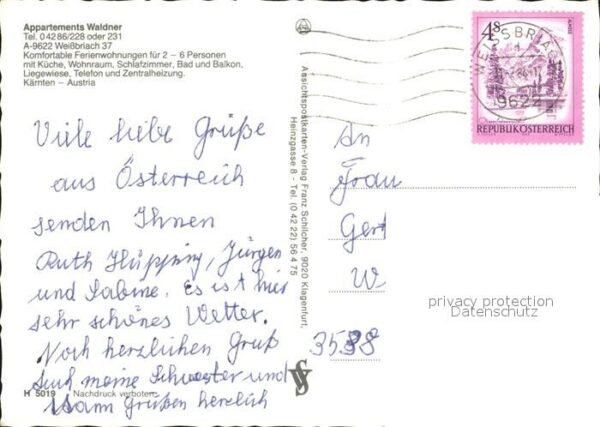 Appartements Waldner
Tel. 0 42 86/228 oder 231
A-9622 Weißbriach 37
Komfortable Ferienwohnungen für 2 – 6 Personen
mit Küche, Wohnraum, Schlafzimmer, Bad und Balkon,
Liegewiese, Telefon und Zentralheizung.
Kärnten – Austria
Viele liebe Grüße
aus Österreich
senden Ihnen
Ruth Hüpping, Jürgen
und Sabine. Es ist hier
sehr schönes Wetter.
Noch herzlichen Gruß
auch meine Schwester und
Mann grüßen herzlich
H 5019 Nachdruck verboten
Ansichtspostkarten-Verlag Franz Schilcher, 9020 Klagenfurt,
Heinzgasse 8 - Tel. (0 42 22) 56 4 75
4S
REPUBLIK ÖSTERREICH
WEISSBRIACH
9622
An
Frau
Gert
W
3588
privacy protection
Datenschutz